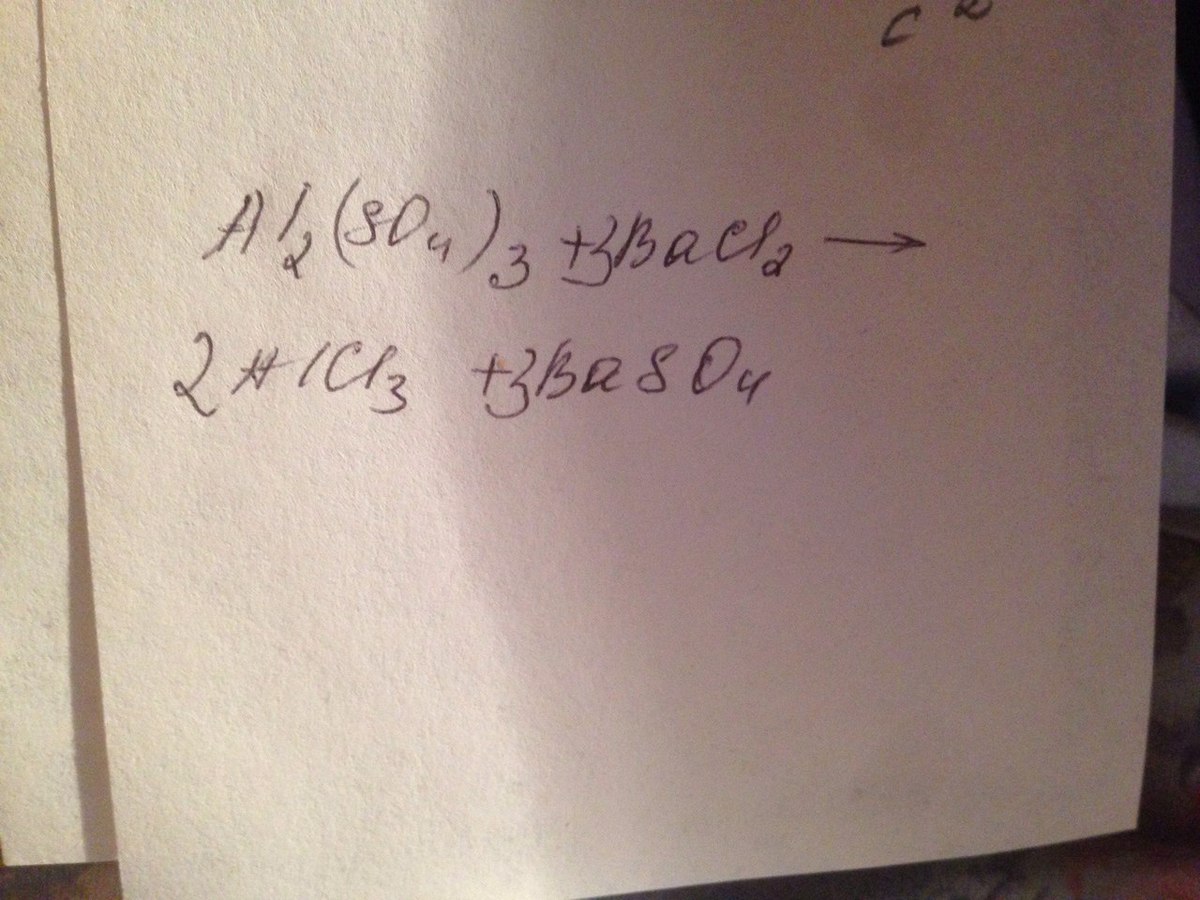 c
Al₂(SO₄)₃ +3BaCl₂ →
2AlCl₃ +3BaSO₄